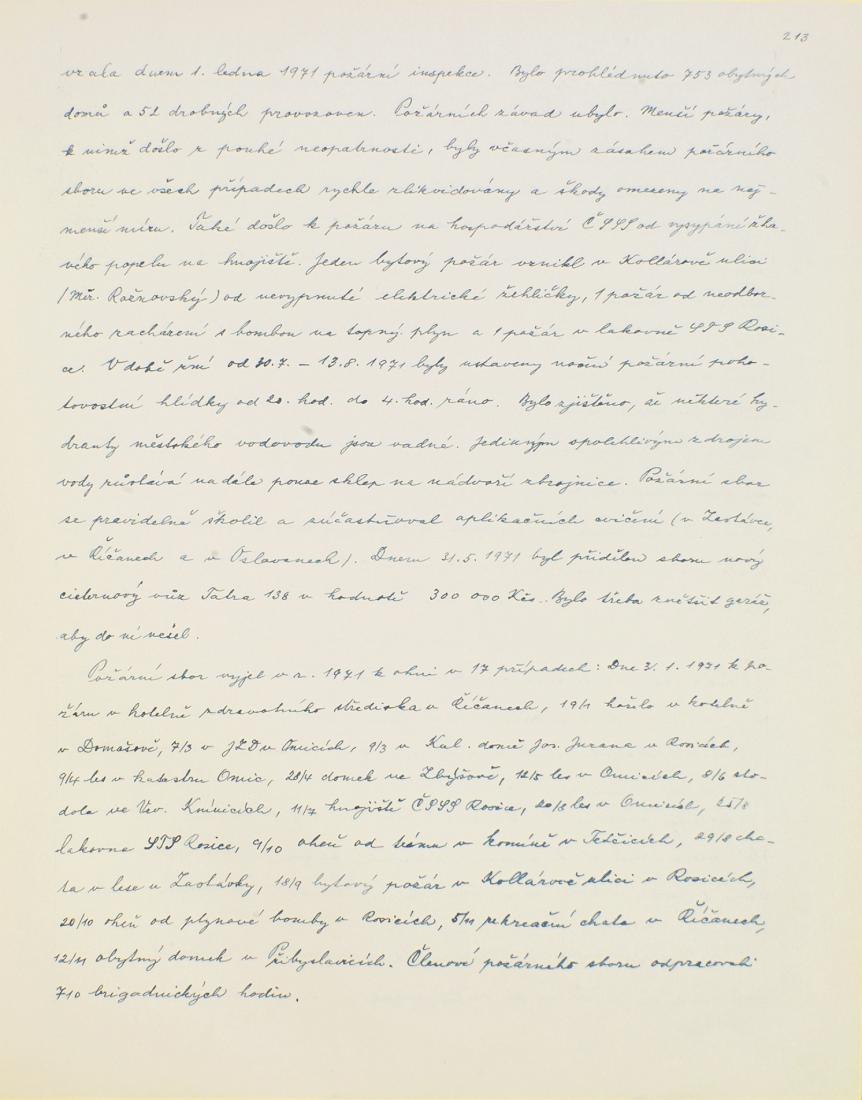 213
vzala dnem 1. ledna 1971 požární inspekce. Bylo prohlédnuto 753 obytných
domů a 52 drobných provozoven. Požárních závad ubylo. Menší požáry,
k nimž došlo z pouhé neopatrnosti, byly včasným zásahem požárního
sboru ve všech případech rychle zlikvidovány a škody omezeny na nej-
menší míru. Také došlo k požáru na hospodářství ČSSS od vysypání žha-
vého popelu na hnojiště. Jeden bytový požár vznikl v Kollárově ulici
(Mir. Rožnovský) od nevypnuté elektrické žehličky, 1 požár od neodbor-
ného zacházení s bombou na topný plyn a 1 požár v lakovně STS Rosi-
ce. V době žní od 30.7. – 13.8. 1971 byly ustaveny noční požární poho-
tovostní hlídky od 20. hod. do 4. hod. ráno. Bylo zjištěno, že některé hy-
dranty městského vodovodu jsou vadné. Jediným spolehlivým zdrojem
vody zůstává nadále pouze sklep na nádvoří zbrojnice. Požární sbor
se pravidelně školil a súčastňoval aplikačních cvičení (v Zastávce,
v Říčanech a v Oslavanech). Dnem 31.5. 1971 byl přidělen sboru nový
cisternový vůz Tatra 138 v hodnotě 300 000 Kčs. Bylo třeba zvětšit garáž,
aby do ní vešel.
Požární sbor vyjel v r. 1971 k ohni v 17 případech: Dne 3. 1. 1971 k po-
žáru v kotelně zdravotního střediska v Říčanech, 19/1 hořelo v kotelně
v Domašově, 7/3 v JZD v Omicích, 9/3 v Kul. domě Jos. Jurana v Rosicích,
9/4 les v katastru Omic, 28/4 domek ve Zbýšově, 12/5 les v Omicích, 8/6 sto-
dola ve Vev. Knínicích, 11/7 hnojiště ČSSS Rosice, 20/8 les v Omicích, 25/8
lakovna STS Rosice, 9/10 oheň od trámu v komíně v Tetčicích, 29/8 cha-
ta v lese u Zastávky, 18/9 bytový požár v Kollárově ulici v Rosicích,
20/10 oheň od plynové bomby v Rosicích, 5/11 rekreační chata v Říčanech,
12/11 obytný domek v Přibyslavicích. Členové požárního sboru odpracovali
710 brigadnických hodin.